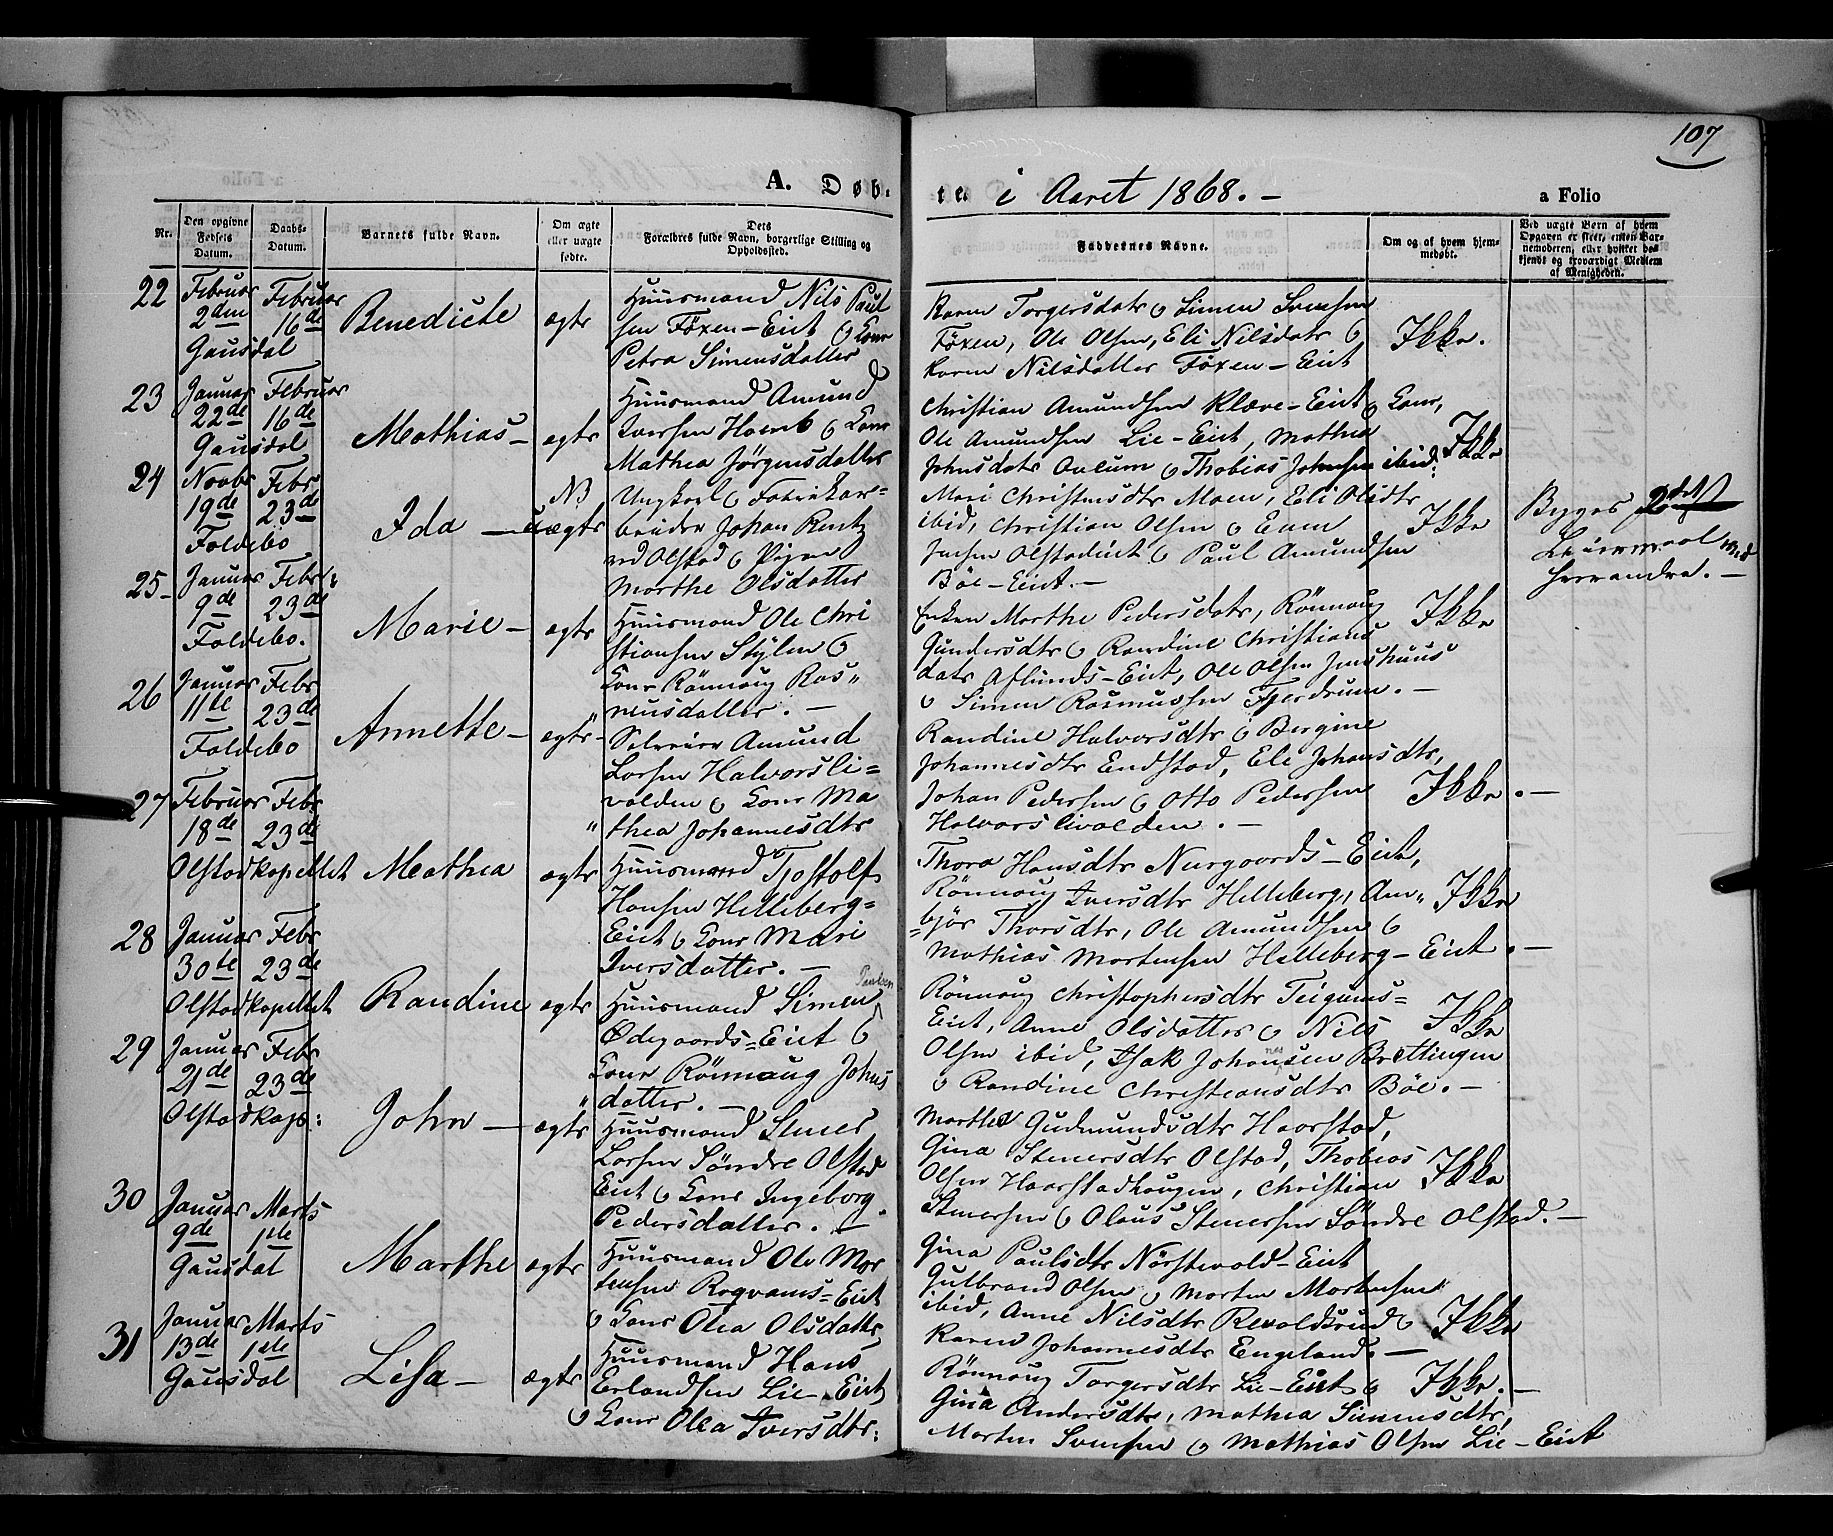 107
A. Døb-
te i Aaret 1868. -
a Folio
Nr.
Den opgivne Fødsels Datum.
Daabs-Datum.
Barnets fulde Navn.
Om ægte eller uægte fødte.
Dets Forældres fulde Navn, borgerlige Stilling og Opholdssted.
Faddernes Navne.
Om og af hvem hjemmedøbt.
Ved uægte Børn af hvem Opgaven er skeet, enten Barnemoderen, eller hvilket bekjendt og troværdigt Medlem af Menigheden.
22
Februar Februar
2den 16de
Gausdal
Benedicte
ægte
Huusmand Nils Paul
sen Föxen-Eiet og Kone
Petra Simensdatter
Karen Torgersdatr og Simen Svensen
Föxen, Ole Olsen, Eli Nilsdatr og
Karen Nilsdatter Föxen-Eiet
Ikke.
23
Januar Februar
22de 16de
Gausdal
Mathias -
ægte
Huusmand Amund
Iversen og Kone
Mathea Jörgensdatter
Christian Amundsen Klæve-Eiet og Kone,
Ole Amundsen Lie-Eiet, Mathea
Johnsdatr Aulum og Thobias Johnsen ibid:
Ikke
24
Novbr Febr
19de 23de
Foldebo
Ida -
NB
uægte
Ungkarl og Fabrikar-
beider Johan Rentz
ved Olstad og Pigen
Marthe Olsdatter
Mari Christensdtr Moen, Eli Olsdtr
ibid, Christian Olsen og Even
Jensen Olstadeiet og Paul Amundsen
Böe-Eiet. -
Ikke
Begges 2det
Leiermaal med
hverandre. -
25 -
Januar Febr:
9de 23de
Foldebo.
Marie -
ægte
Huusmand Ole Chri
stiansen Stylen og
Kone Rönnaug Ras-
musdatter. -
Enken Marthe Pedersdatr, Rönnaug
Gundersdtr og Randine Christians
datr Aflunds-Eiet, Ole Olsen Jenshuus
og Simen Rasmussen Fjerdrum. -
Ikke
26
Januar Febr
11te 23de
Foldebo
Annette -
ægte -
Selveier Amund
Larsen Halvorsli-
volden og Kone Ma
thea Johannesdtr
Randine Halvorsdtr og Bergine
Johannesdtr Endstad, Eli Johansdtr,
Johan Pedersen og Otto Pedersen
Halvorslivolden. -
Ikke. -
27
Februar Febr
18de 23de
Olstadkapellet
Mathea
ægte
Huusmand Tjostolf
Hansen Helleberg-
Eiet og Kone Mari
Iversdatter. -
Thora Hansdtr Nurgaards-Eiet,
Rönnaug Iversdtr Helleberg, Am-
björ Thorsdtr, Ole Amundsen og
Mathias Mortensen Helleberg-Eiet. -
Ikke
28
Januar Febr
30te 23de
Olstadkapellet
Randine
ægte
Paulsen
Huusmand Simen
Ødegaards-Eiet og
Kone Rönnaug Johns
datter. -
Rönnaug Christophersdtr Teigums-
Eiet, Anne Olsdatter og Nils
Olsen ibid, Isak Johannesen Brettingen
og Randine Christiansdtr Böe. -
Ikke
29
Januar Febr
21de 23de
Olstadkap:
John -
ægte
Huusmand Stener
Larsen Söndre Olstad
Eiet og Kone Ingeborg
Pedersdatter. -
Marthe Gudmundsdtr Haarstad,
Gina Stenersdtr Olstad, Thobias
Olsen Haarstadhaugen, Christian
Stenersen og Olaus Stenersen Söndre Olstad. -
Ikke
30
Januar Marts
9de 1ste
Gausdal
Marthe
ægte
Huusmand Ole Mor
tensen Rogvams-Eiet
og Kone Olea Olsdatter
Gina Paulsdtr Nörstevold-Eiet
Gulbrand Olsen og Morten Mortensen
ibid, Anne Nilsdtr Revoldsrud og
Karen Johannesdtr Engeland. -
Ikke
31
Januar Marts
13de 1ste
Gausdal
Lisa -
ægte
Huusmand Hans
Erlandsen Lie-Eiet
og Kone Olea Iversdtr:
Rönnaug Torgersdtr Lie-Eiet og
Gina Andersdtr, Mathea Simensdtr,
Morten Svensen og Mathias Olsen Lie-Eiet
Ikke. -